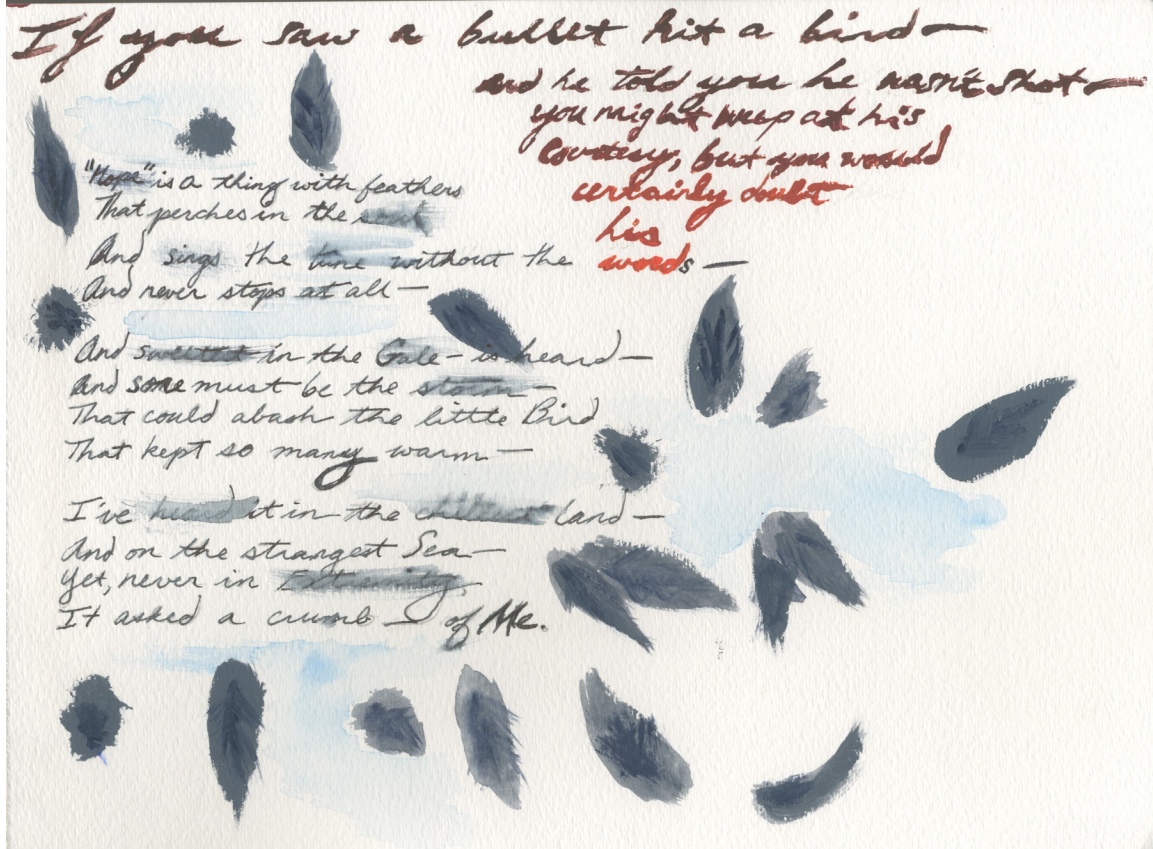 If you saw a bullet hit a bird—
and he told you he wasn't shot—
you might weep at his
courtesy, but you would
certainly doubt
his
words—
"Hope" is a thing with feathers
That perches in the soul
And sings the tune without the
And never stops at all—
And sweetest in the Gale – is heard—
And sore must be the storm—
That could abash the little Bird
That kept so many warm—
I've heard it in the chillest land—
And on the strangest Sea—
Yet, never in Extremity,
It asked a crumb — of Me.